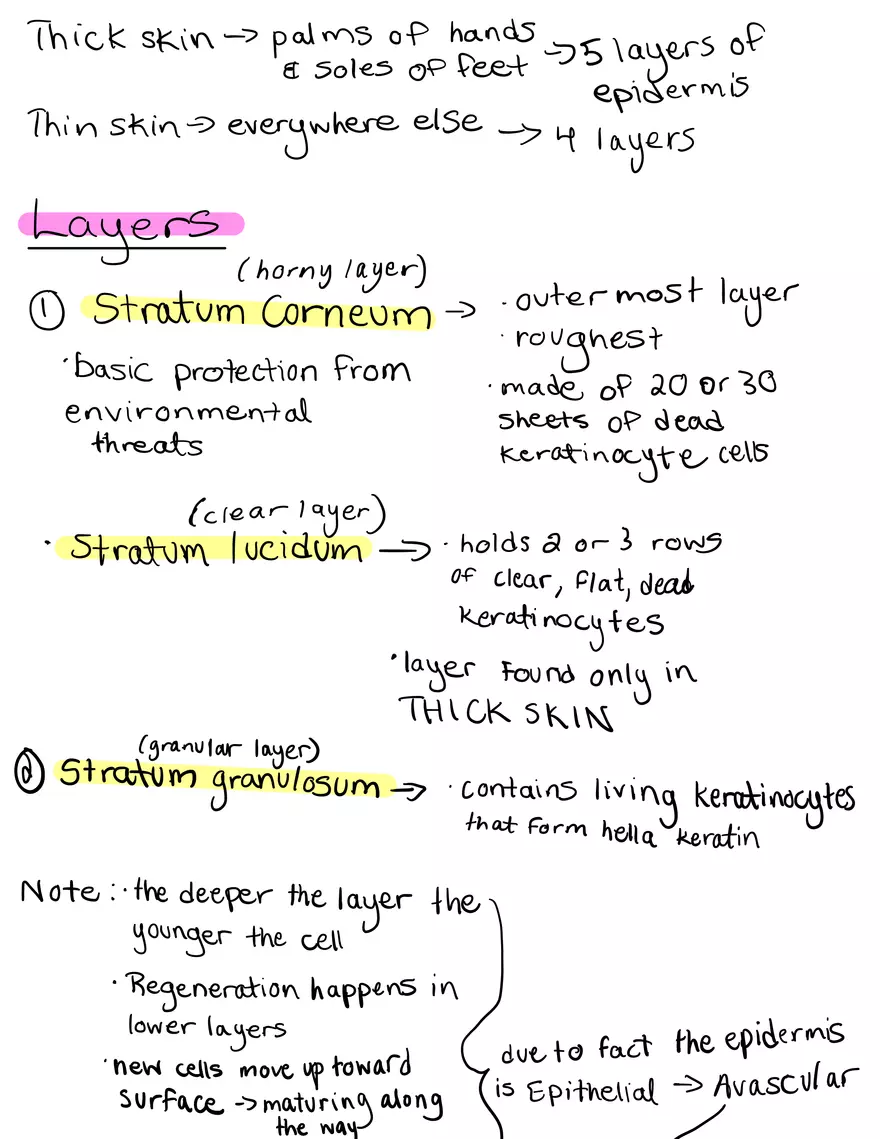 Thick skin → palms of hands
& soles of feet → 5 layers of
epidermis
Thin skin → everywhere else → 4 layers
Layers
(horny layer)
① Stratum Corneum →
· basic protection from
environmental
threats
· outer most layer
· roughest
· made of 20 or 30
sheets of dead
keratinocyte cells
(clear layer)
· Stratum lucidum →
· holds 2 or 3 rows
of clear, flat, dead
keratinocytes
· layer found only in
THICK SKIN
(granular layer)
② Stratum granulosum →
· contains living keratinocytes
that form hella keratin
Note : · the deeper the layer the
younger the cell
· Regeneration happens in
lower layers
· new cells move up toward
surface → maturing along
the way
due to fact the epidermis
is Epithelial → Avascular